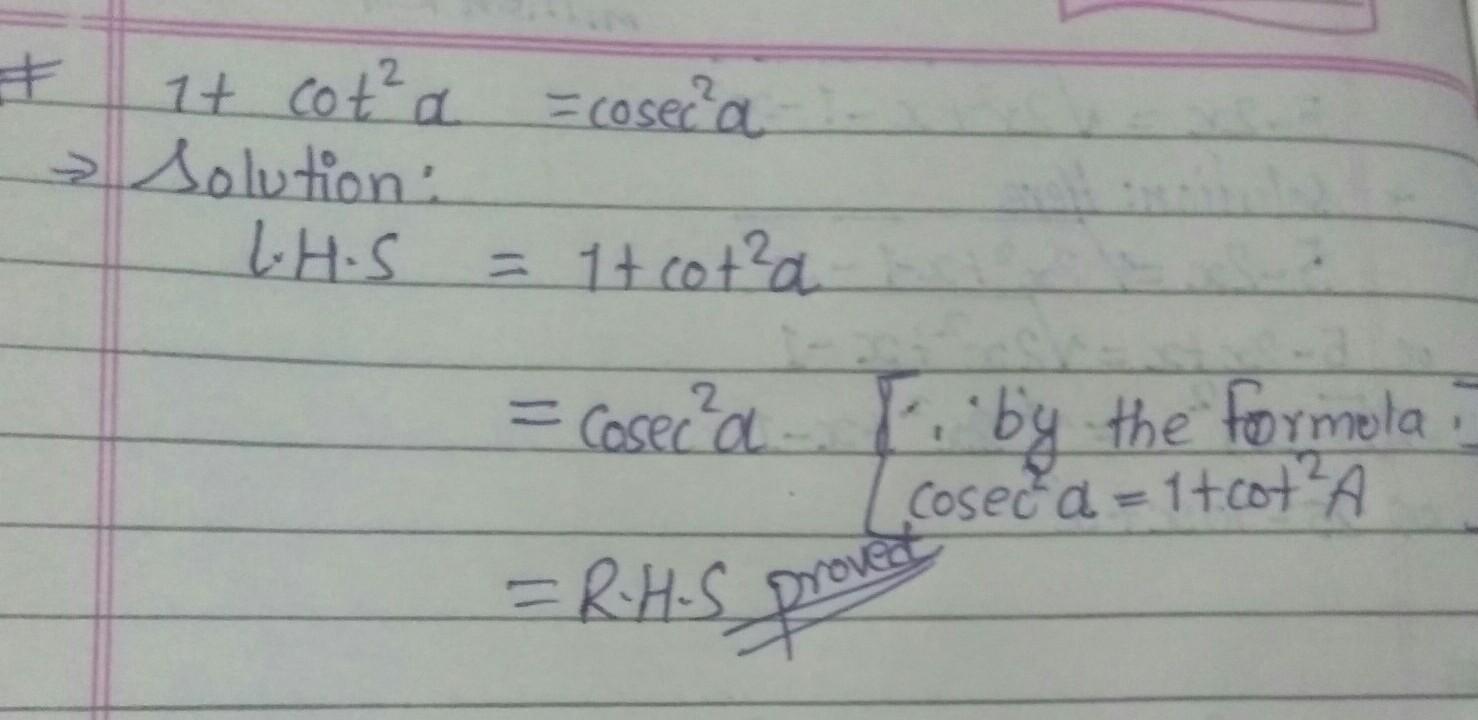 # 1 + cot²a = cosec²a
⇒ Solution:
L.H.S = 1 + cot²a
= cosec²a [∵ by the formola:
cosec²a = 1 + cot²A]
= R.H.S proved